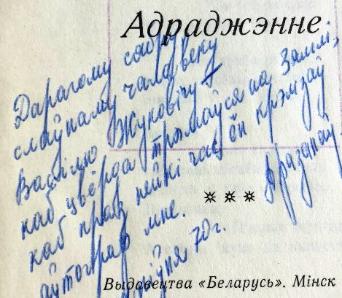 Адраджэнне
Дарагому сябру,
слаўнаму чалавеку
Васілю Жуковічу —
каб цвёрда трымаўся на Зямлі,
каб праз нейкі час ён крэмзаў
аўтограф мне.
70 г.
* * *
Выдавецтва «Беларусь». Мінск